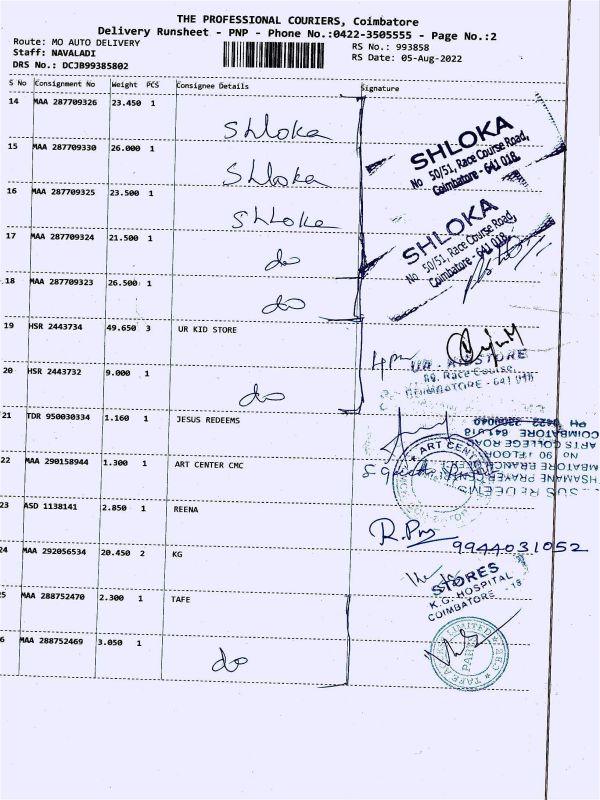 THE PROFESSIONAL COURIERS, Coimbatore
Delivery Runsheet - PNP - Phone No.:0422-3505555 - Page No.:2
Route: MO AUTO DELIVERY
RS No.: 993858
Staff: NAVALADI
RS Date: 05-Aug-2022
DRS No.: DCJB99385802
S No Consignment No Weight PCS Consignee Details Signature
14 MAA 287709326 23.450 1 Shloka
15 MAA 287709330 26.000 1 Shloka
SHLOKA
No 50/51, Race Course Road,
Coimbatore - 641 018.
16 MAA 287709325 23.500 1 Shloka
17 MAA 287709324 21.500 1 do
SHLOKA
No 50/51, Race Course Road,
Coimbatore - 641 018.
18 MAA 287709323 26.500 1 do
19 HSR 2443734 49.650 3 UR KID STORE
4pm
UR KID STORE
Race Course,
COIMBATORE - 641 018
20 HSR 2443732 9.000 1 do
21 TDR 950030334 1.160 1 JESUS REDEEMS
PH 0422
COIMBATORE 641 018
ARTS COLLEGE ROAD
No 90 I FLOOR
22 MAA 290158944 1.300 1 ART CENTER CMC
ART CENTER
23 ASD 1138141 2.850 1 REENA
R.
9944031052
24 MAA 292056534 20.450 2 KG
STORES
K.G. HOSPITAL
COIMBATORE - 18
25 MAA 288752470 2.300 1 TAFE
26 MAA 288752469 3.050 1 do
LIMITED
PARTS